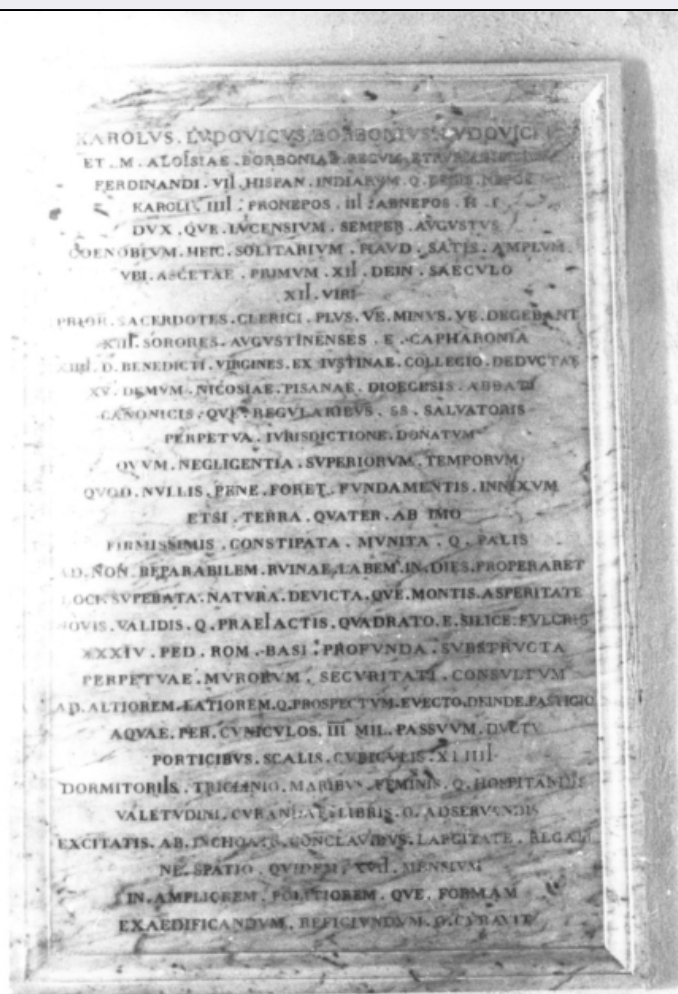 KAROLVS . LVDOVICVS . BORBONIVS . LVDOVICI
ET . M . ALOISIAE . BORBONIAE . REGVM .
FERDINANDI . VII . HISPAN . INDIARVM . Q . REGIS . NEPOS
KAROLI . IIII . PRONEPOS . III . ABNEPOS . H . I
DVX . QVE . LVCENSIVM . SEMPER . AVGVSTVS
COENOBIVM . HEIC . SOLITARIVM . HAVD . SATIS . AMPLVM
VBI . ASCETAE . PRIMVM . XII . DEIN . SAECVLO
XII . VIRI
PRIOR . SACERDOTES . CLERICI . PLVS . VE . MINVS . VE . DEGEBANT
XIII . SORORES . AVGVSTINENSES . E . CAPHARONIA
XIIII . D . BENEDICTI . VIRGINES . EX IVSTINAE . COLLEGIO . DEDVCTAE
XV . DEMVM . NICOSIAE . PISANAE . DIOECESIS . ABBATI
CANONICIS . QVE . REGVLARIBVS . SS . SALVATORIS
PERPETVA . IVRISDICTIONE . DONATVM
QVVM . NEGLIGENTIA . SVPERIORVM . TEMPORVM
QVOD . NVLLIS . PENE . FORET . FVNDAMENTIS . INNIXVM
ETSI . TERRA . QVATER . AB IMO
FIRMISSIMIS . CONSTIPATA . MVNITA . Q . PALIS
AD . NON . REPARABILEM . RVINAE . LABEM . IN . DIES . PROPERARET
LOCI . SVPERATA . NATVRA . DEVICTA . QVE . MONTIS . ASPERITATE
NOVIS . VALIDIS . Q . PRAEIACTIS . QVADRATO . E . SILICE . FVLCRIS
XXXIV . PED . ROM . BASI . PROFVNDA . SVBSTRVCTA
PERPETVAE . MVRORVM . SECVRITATI . CONSVLTVM
AD . ALTIOREM . LATIOREM . Q . PROSPECTVM . EVECTO . DEINDE . FASTIGIO
AQVAE . PER . CVNICVLOS . III MIL . PASSVVM . DVCTV
PORTICIBVS . SCALIS . CVBICVLIS . XLIIII
DORMITORIIS . TRICLINIO . MARIBVS . FEMINIS . Q . HOSPITANDIS
VALETVDINI . CVRANDAE . LIBRIS . Q . ADSERVANDIS
EXCITATIS . AB . INCHOATO . CONCLAVIBVS . LARGITATE . REGALI
NE . SPATIO . QVIDEM . XVII . MENSIVM
IN . AMPLIOREM . POLITIOREM . QVE . FORMAM
EXAEDIFICANDVM . REFICIVNDVM . Q . CVRAVIT